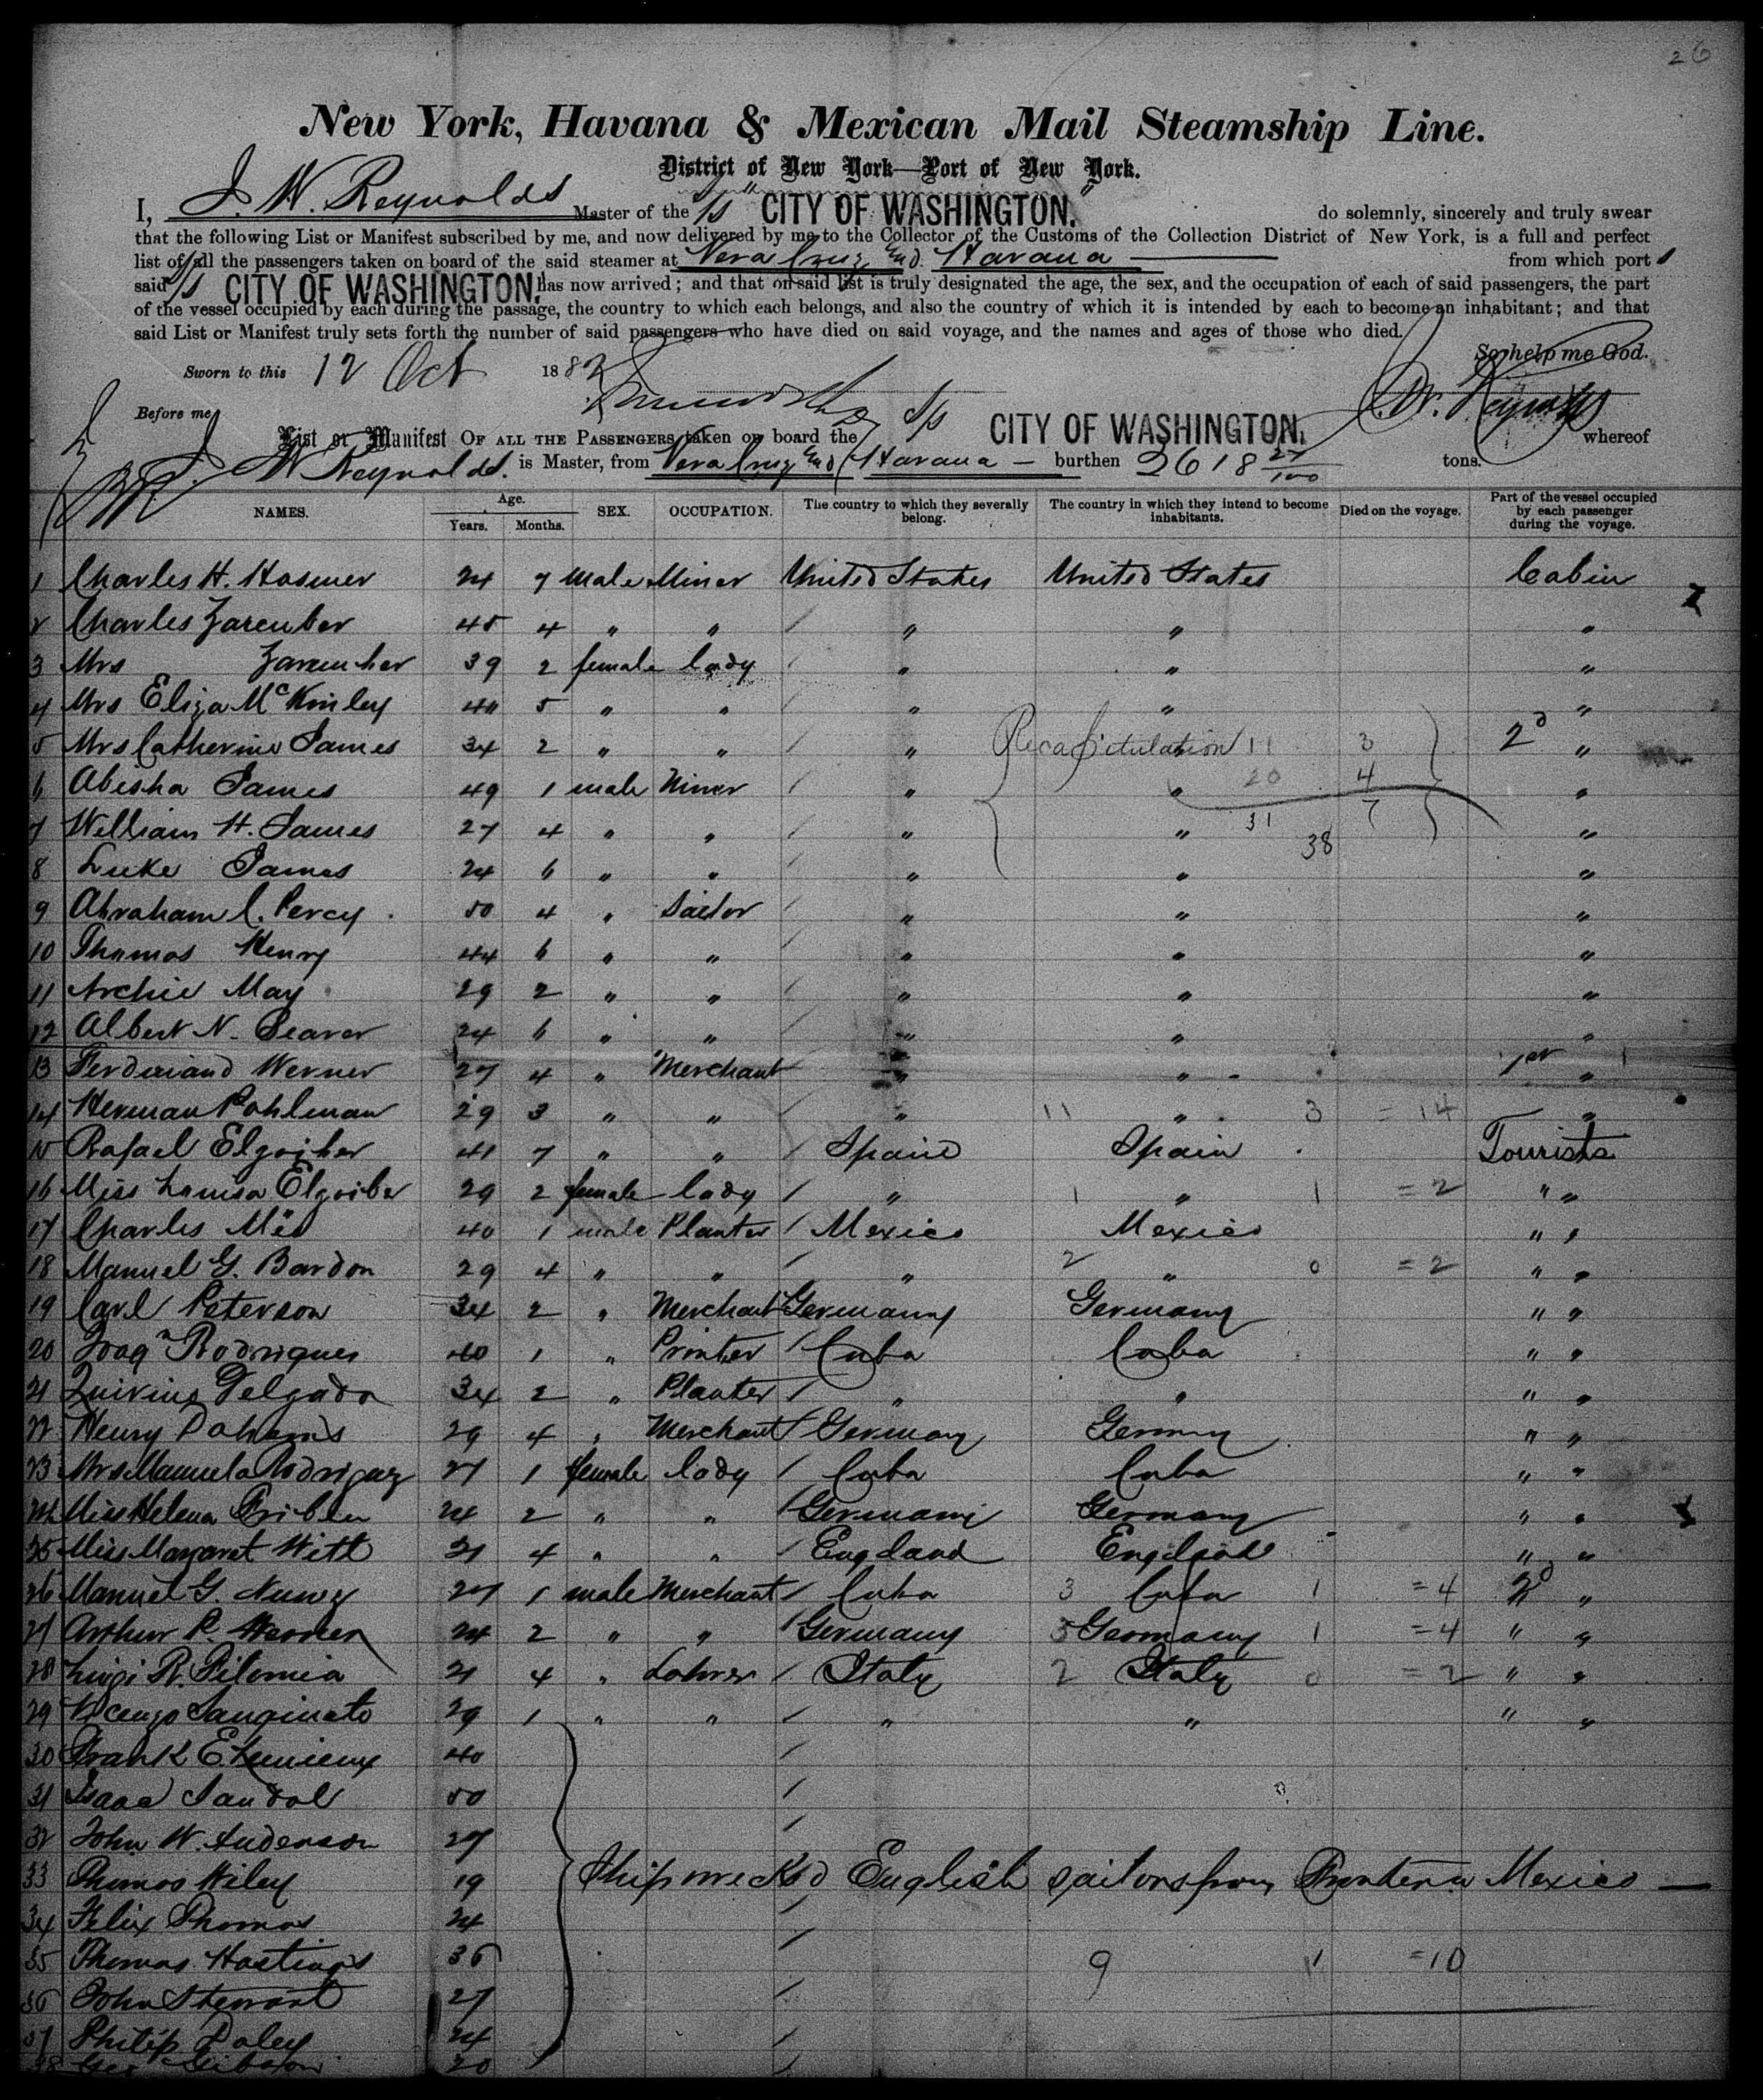 26
New York, Havana & Mexican Mail Steamship Line.
District of New York—Port of New York.
I, J. W. Reynolds Master of the S/s "CITY OF WASHINGTON." do solemnly, sincerely and truly swear
that the following List or Manifest subscribed by me, and now delivered by me to the Collector of the Customs of the Collection District of New York, is a full and perfect
list of all the passengers taken on board of the said steamer at Vera Cruz and Havana from which port s
said S/s CITY OF WASHINGTON. has now arrived; and that on said list is truly designated the age, the sex, and the occupation of each of said passengers, the part
of the vessel occupied by each during the passage, the country to which each belongs, and also the country of which it is intended by each to become an inhabitant; and that
said List or Manifest truly sets forth the number of said passengers who have died on said voyage, and the names and ages of those who died.
So help me God.
Sworn to this 12 Oct 1882
J. W. Reynolds
Before me,
List or Manifest OF ALL THE PASSENGERS taken on board the S/s CITY OF WASHINGTON. whereof
J. W. Reynolds. is Master, from Vera Cruz and Havana — burthen 2618 27/100 tons.
NAMES. Age. Years. Months. SEX. OCCUPATION. The country to which they severally belong. The country in which they intend to become inhabitants. Died on the voyage. Part of the vessel occupied by each passenger during the voyage.
1 Charles H. Hosmer 24 7 male Miner United States United States Cabin
2 Charles 45 4 " " " " "
3 Mrs 39 2 female lady " " "
4 Mrs Eliza McKinley 40 5 " " " " "
5 Mrs Catherine James 34 2 " " " Recapitulation " 11 3 2d "
6 Abisha James 49 1 male Miner " " 20 4 "
7 William H. James 27 4 " " " " 31 7 "
8 Luke James 24 6 " " " " 38 "
9 Abraham C. Percy 50 4 " Sailor " " "
10 Thomas Henry 44 6 " " " " "
11 Archie May 29 2 " " " " "
12 Albert N. Seaver 24 6 " " " " "
13 Ferdinand Werner 27 4 " Merchant " " 1st "
14 Herman Pohlman 29 3 " " " 11 " 3 = 14 "
15 Rafael Elgoiber 41 7 " " Spain Spain Tourists
16 Miss Louisa Elgoiber 29 2 female lady " 1 " 1 = 2 " "
17 Charles 40 1 male Planter Mexico Mexico " "
18 Manuel G. Bardon 29 4 " " " 2 " 0 = 2 " "
19 Carl Peterson 34 2 " Merchant Germany Germany " "
20 Joaqn Rodrigues 40 1 " Printer Cuba Cuba " "
21 Delgado 34 2 " Planter " " " "
22 Henry 29 4 " Merchant Germany Germany " "
23 Mrs Manuela Rodriguez 27 1 female lady Cuba Cuba " "
24 Miss Helena 24 2 " " Germany Germany " "
25 Miss Margaret Witt 21 4 " " England England " "
26 Manuel G. Nunez 27 1 male Merchant Cuba 3 Cuba 1 = 4 2d "
27 Arthur P. 24 2 " " Germany 3 Germany 1 = 4 " "
28 Luigi R. Filomia 21 4 " Laborer Italy 2 Italy 0 = 2 " "
29 29 1 " " " " " "
30 Frank 40
31 Isaac Sandal 50
32 John W. Anderson 27
33 Thomas Wiley 19 Shipwrecked English sailors from Frontera Mexico —
34 Felix Thomas 24
35 Thomas Hastings 36 9 1 = 10
36 John Stewart 27
37 Philip Daley 24
38 Geo Gibson 20